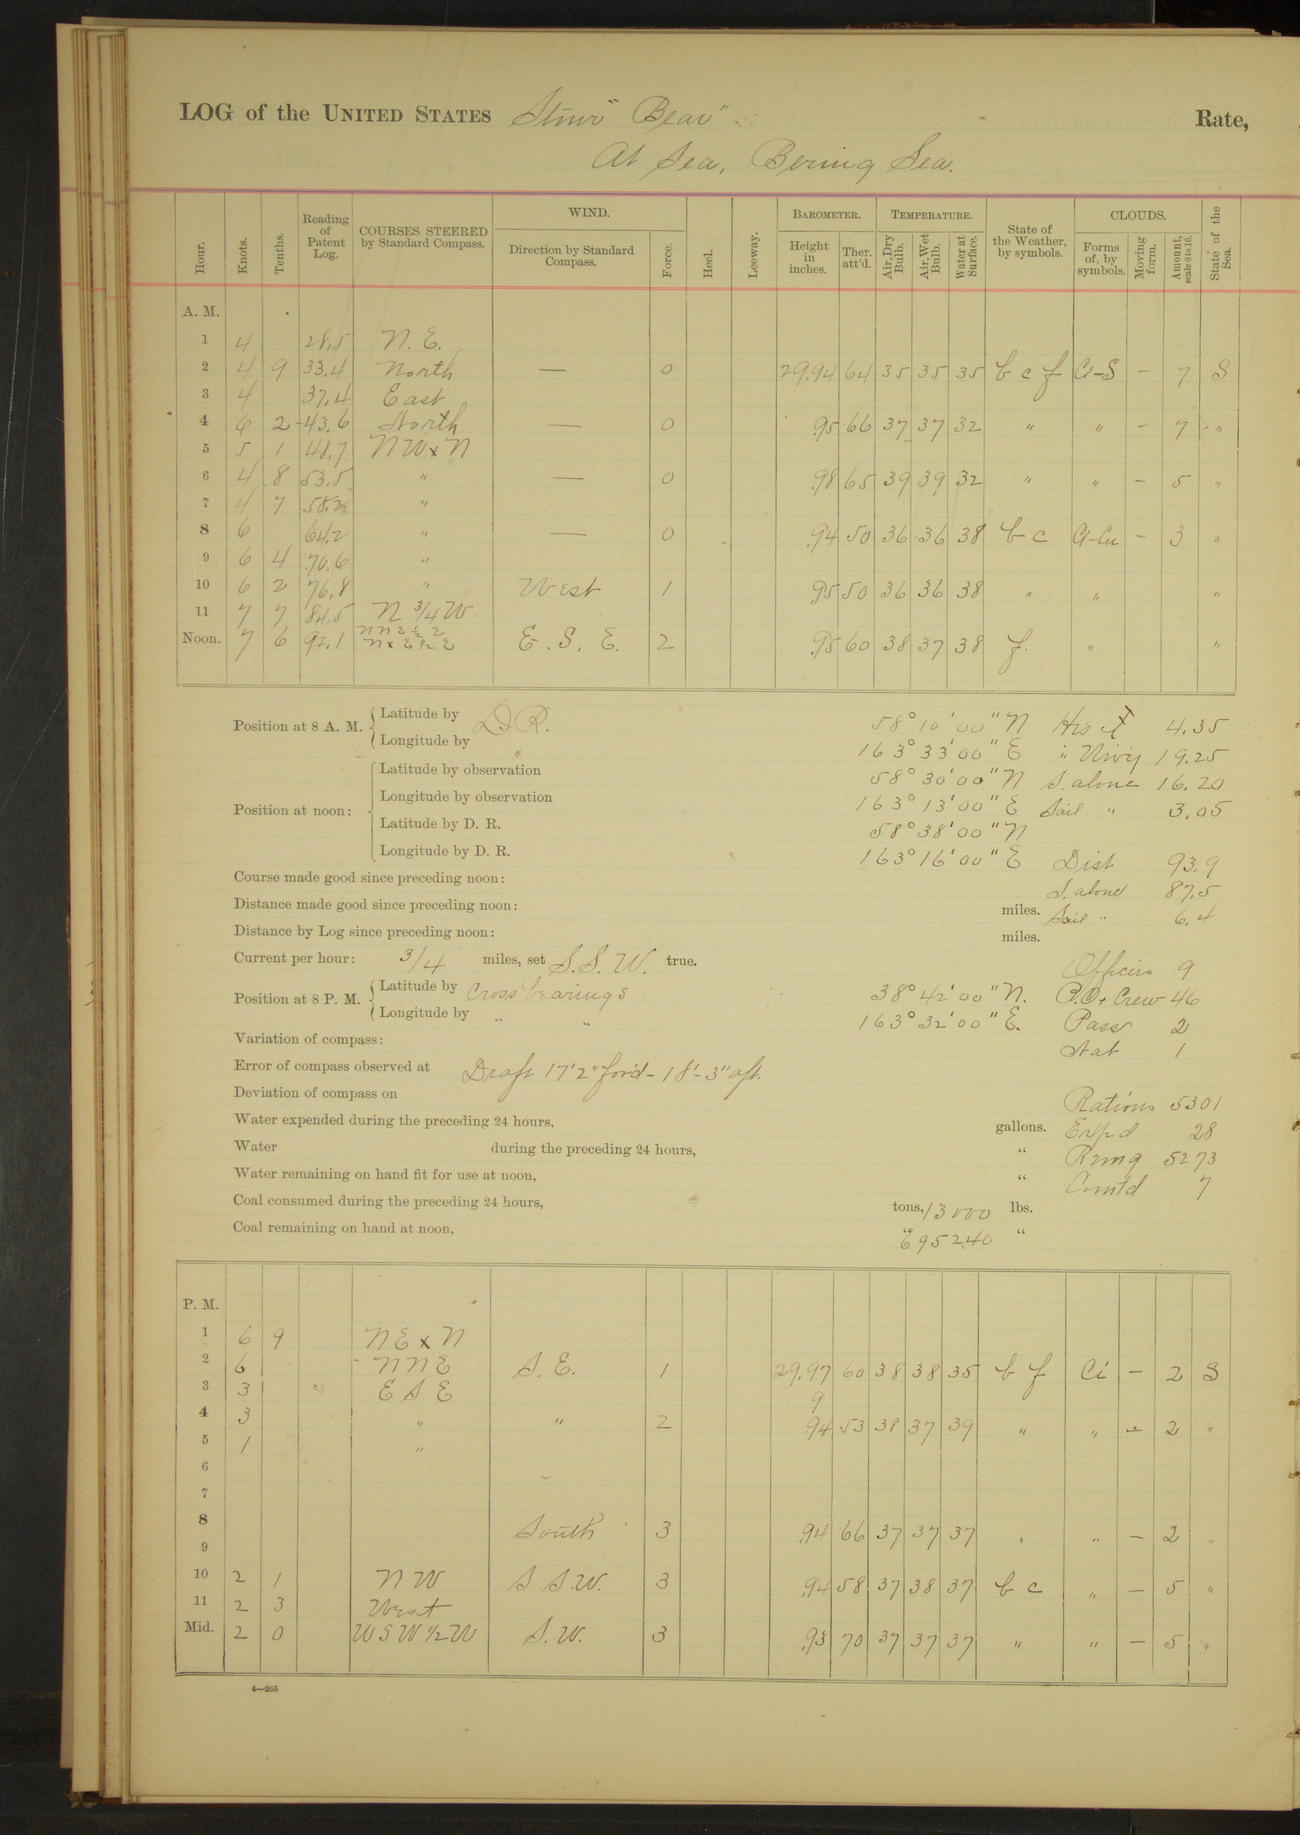 LOG of the UNITED STATES Stmr "Bear" Rate,
At Sea, Bering Sea.
Hour. Knots. Tenths. Reading of Patent Log. COURSES STEERED by Standard Compass. WIND. Direction by Standard Compass. Force. Heel. Leeway. BAROMETER. Height in inches. Ther. att'd. TEMPERATURE. Air, Dry Bulb. Air, Wet Bulb. Water at Surface. State of the Weather, by symbols. CLOUDS. Forms of, by symbols. Moving form. Amount, scale 0 to 10. State of the Sea.
A. M.
1 4 28.5 N. E.
2 4 9 33.4 North — 0 29.94 64 35 35 35 b c f Ci-S — 7 S
3 4 37.4 East
4 6 2 43.6 North — 0 .95 66 37 37 32 " " — 7 "
5 5 1 48.7 NW x N
6 4 8 53.5 " — 0 .98 65 39 39 32 " " — 5 "
7 4 7 58.2 "
8 6 64.2 " — 0 .94 50 36 36 38 b c Ci-Cu — 3 "
9 6 4 70.6 "
10 6 2 76.8 " West 1 .95 50 36 36 38 " " "
11 7 7 84.5 N 3/4 W
Noon. 7 6 92.1 NNE 1/2 E N x E 1/2 E E. S. E. 2 .95 60 38 37 38 f. " "
Position at 8 A. M. Latitude by D.R. 58° 10' 00" N Hrs 4.35
Longitude by " 163° 33' 00" E " Nvig 19.25
Position at noon: Latitude by observation 58° 30' 00" N S. alone 16.20
Longitude by observation 163° 13' 00" E Sail " 3.05
Latitude by D. R. 58° 38' 00" N
Longitude by D. R. 163° 16' 00" E Dist 93.9
Course made good since preceding noon: S. alone 87.5
Distance made good since preceding noon: miles. Sail " 6.4
Distance by Log since preceding noon: miles.
Current per hour: 3/4 miles, set S. S. W. true. Officers 9
Position at 8 P. M. Latitude by Cross bearings 38° 42' 00" N. P.O. + Crew 46
Longitude by " " 163° 32' 00" E. Pass 2
Variation of compass: Nat 1
Error of compass observed at Draft 17' 2" for'd - 18' - 3" aft.
Deviation of compass on Rations 5301
Water expended during the preceding 24 hours, gallons. Exp'd 28
Water during the preceding 24 hours, " Rmng 5273
Water remaining on hand fit for use at noon, " Comtd 7
Coal consumed during the preceding 24 hours, tons, 13000 lbs.
Coal remaining on hand at noon, " 695240 "
P. M.
1 6 9 NE x N
2 6 NNE S. E. 1 29.97 60 38 38 35 b f Ci — 2 S
3 3 E S E 9
4 3 " " 2 .94 53 38 37 39 " " — 2 "
5 1 "
6
7
8 South 3 .94 66 37 37 37 " " — 2 "
9
10 2 1 NW S. S. W. 3 .94 58 37 38 37 b c " — 5 "
11 2 3 West
Mid. 2 0 WSW 1/2 W S. W. 3 .93 70 37 37 37 " " — 5 "
4—265